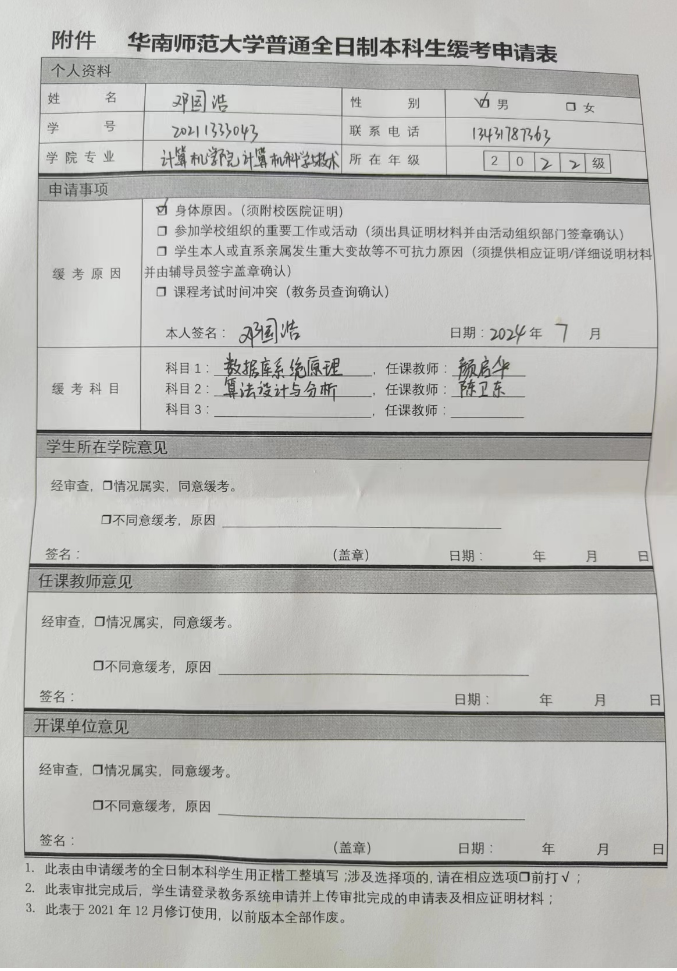 附件 华南师范大学普通全日制本科生缓考申请表
个人资料
姓名 邓国浩 性别 ☑男 □女
学号 20211333043 联系电话 13431787363
学院专业 计算机学院计算机科学与技术 所在年级 2022级
申请事项
☑ 身体原因。（须附校医院证明）
□ 参加学校组织的重要工作或活动（须出具证明材料并由活动组织部门签章确认）
□ 学生本人或直系亲属发生重大变故等不可抗力原因（须提供相应证明/详细说明材料
缓考原因 并由辅导员签字盖章确认）
□ 课程考试时间冲突（教务员查询确认）
本人签名：邓国浩 日期：2024年 7 月
科目1：数据库系统原理，任课教师：颜启华
缓考科目 科目2：算法设计与分析，任课教师：陈卫东
科目3：，任课教师：
学生所在学院意见
经审查，□情况属实，同意缓考。
□不同意缓考，原因
签名： （盖章） 日期： 年 月 日
任课教师意见
经审查，□情况属实，同意缓考。
□不同意缓考，原因
签名： 日期： 年 月 日
开课单位意见
经审查，□情况属实，同意缓考。
□不同意缓考，原因
签名： （盖章） 日期： 年 月 日
1. 此表由申请缓考的全日制本科学生用正楷工整填写；涉及选择项的，请在相应选项□前打√；
2. 此表审批完成后，学生请登录教务系统申请并上传审批完成的申请表及相应证明材料；
3. 此表于2021年12月修订使用，以前版本全部作废。